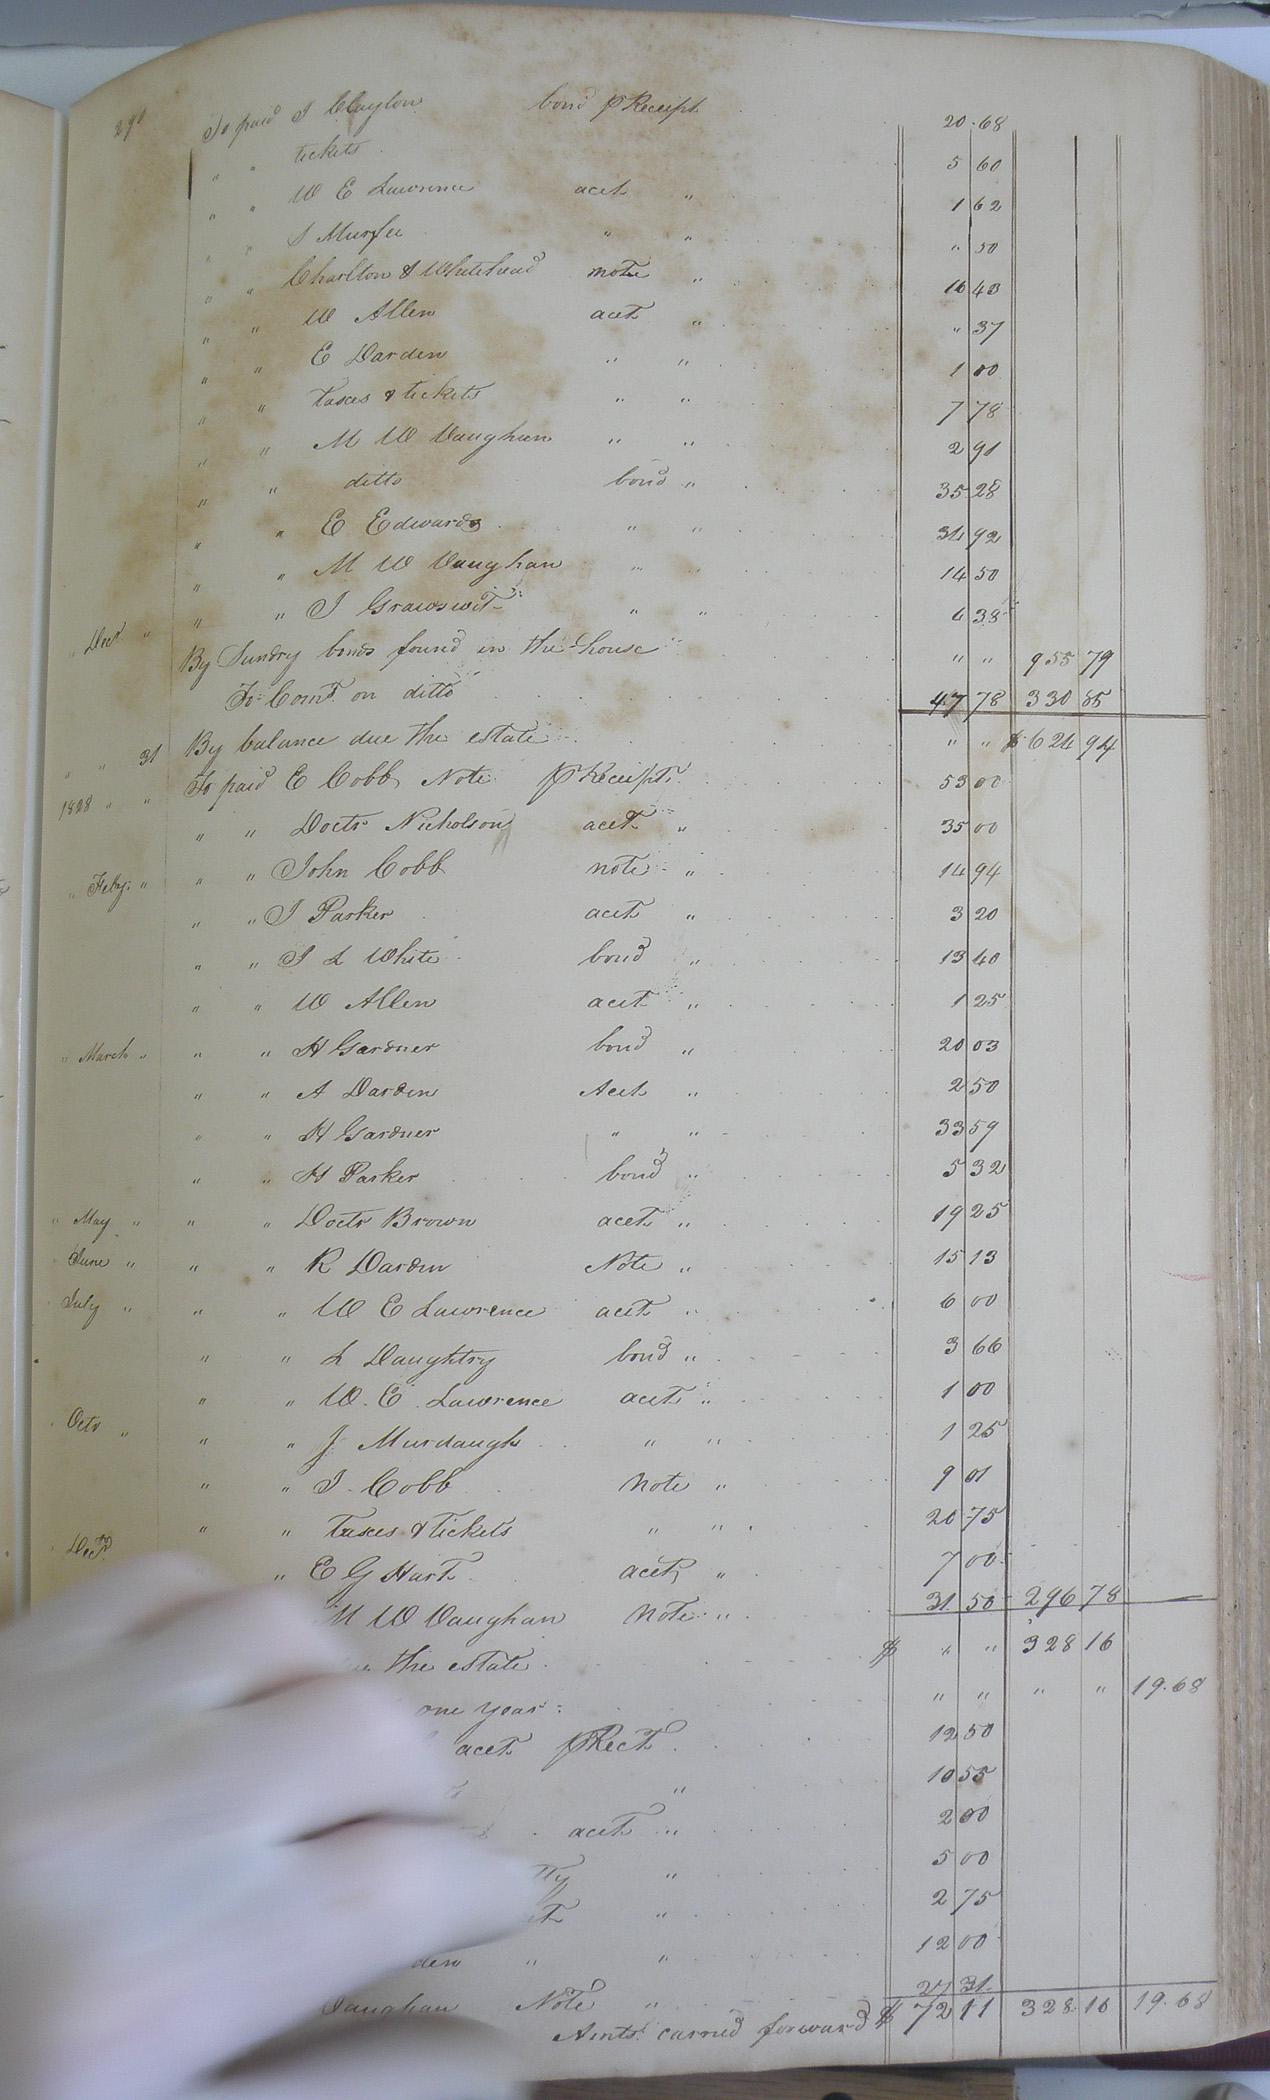 290 To paid J Clayton bond p Receipt 20.68
" " tickets 5 60
" " W E Lawrence acct " 1 62
" " S Murfee " " " 50
" " Charlton & Whitehead note " 16 43
" " W Allen acct " " 37
" " E Darden " " 1 00
" " Taxes & tickets " " 7 78
" " M W Vaughan " " 2 91
" " ditto bond " 35 28
" " E Edwards " " 31 92
" " M W Vaughan " " 14 50
" " J " " 6 38
" Decr " By Sundry bonds found in the house " " 955 79
To Comt. on ditto 47 78 330 85
" " 31 By balance due the estate " " $ 624 94
1828 " " To paid E Cobb Note p Receipt 53 00
" " Doctr Nicholson acct " 35 00
" Feby. " " " John Cobb note " 14 94
" " J Parker acct " 3 20
" " J L White bond " 13 40
" " W Allen acct " 1 25
" March " " " H Gardner bond " 20 03
" " A Darden Acct " 2 50
" " H Gardner " " 33 59
" " H Parker bond " 5 32
" May " " " Doctr Brown acct " 19 25
June " " " R Darden Note " 15 13
July " " " W E Lawrence acct " 6 00
" " L Daughtry bond " 3 66
" " W. E. Lawrence acct " 1 00
Octr " " " J Murdaugh " " 1 25
" " J. Cobb Note " 9 01
" " Taxes & Tickets " " 20 75
Decr. " E G Hart acct " 7 00
M W Vaughan Note " 31 50 296 78
the estate $ " " 328 16
one year " " " " 19.68
acct p Rect 12 50
" 10 55
acct " 2 00
" 5 00
" 2 75
" " 12 00
Vaughan Note " 27 31
Amts. carried forward $ 72 11 328 16 19.68